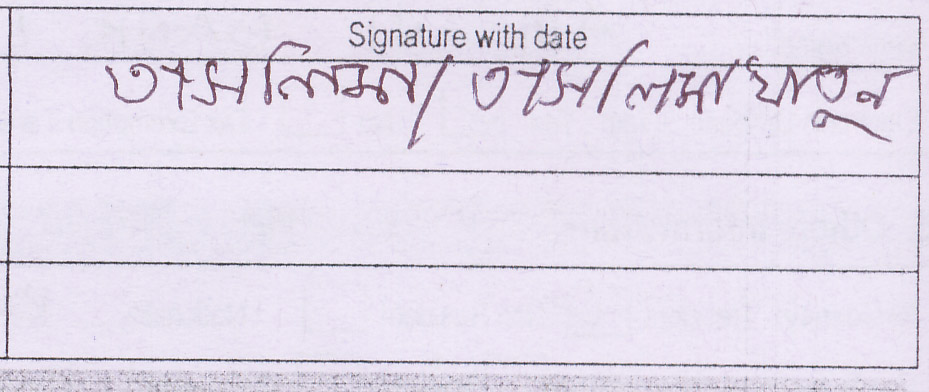 Signature with date
তাসলিমা/ তাসলিমা খাতুন